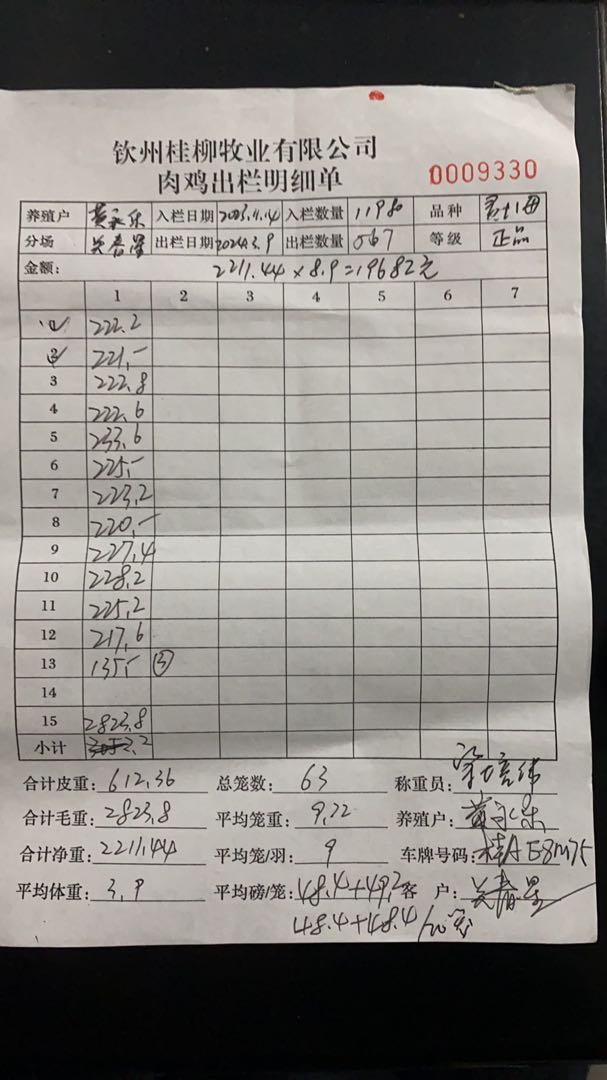 钦州桂柳牧业有限公司
肉鸡出栏明细单
0009330
养殖户 黄永乐 入栏日期 2003.11.14 入栏数量 11980 品种
分场 入栏日期 2024.3.9 出栏数量 567 等级 正品
金额: 2211.44 × 8.9 = 19682元
1 2 3 4 5 6 7
1 222.2
2 221,-
3 222.8
4 222.6
5 233.6
6 225,-
7 223,2
8 220,-
9 227,4
10 228,2
11 225,2
12 217,6
13 135,- ③
14
15 2823,8
小计
合计皮重: 612,36 总笼数: 63 称重员:
合计毛重: 2823,8 平均笼重: 9,72 养殖户: 黄永乐
合计净重: 2211,44 平均笼/羽: 9 车牌号码: 桂A E8M75
平均体重: 3,9 平均磅/笼: 48.4+49,2 客 户:
48.4+48.4